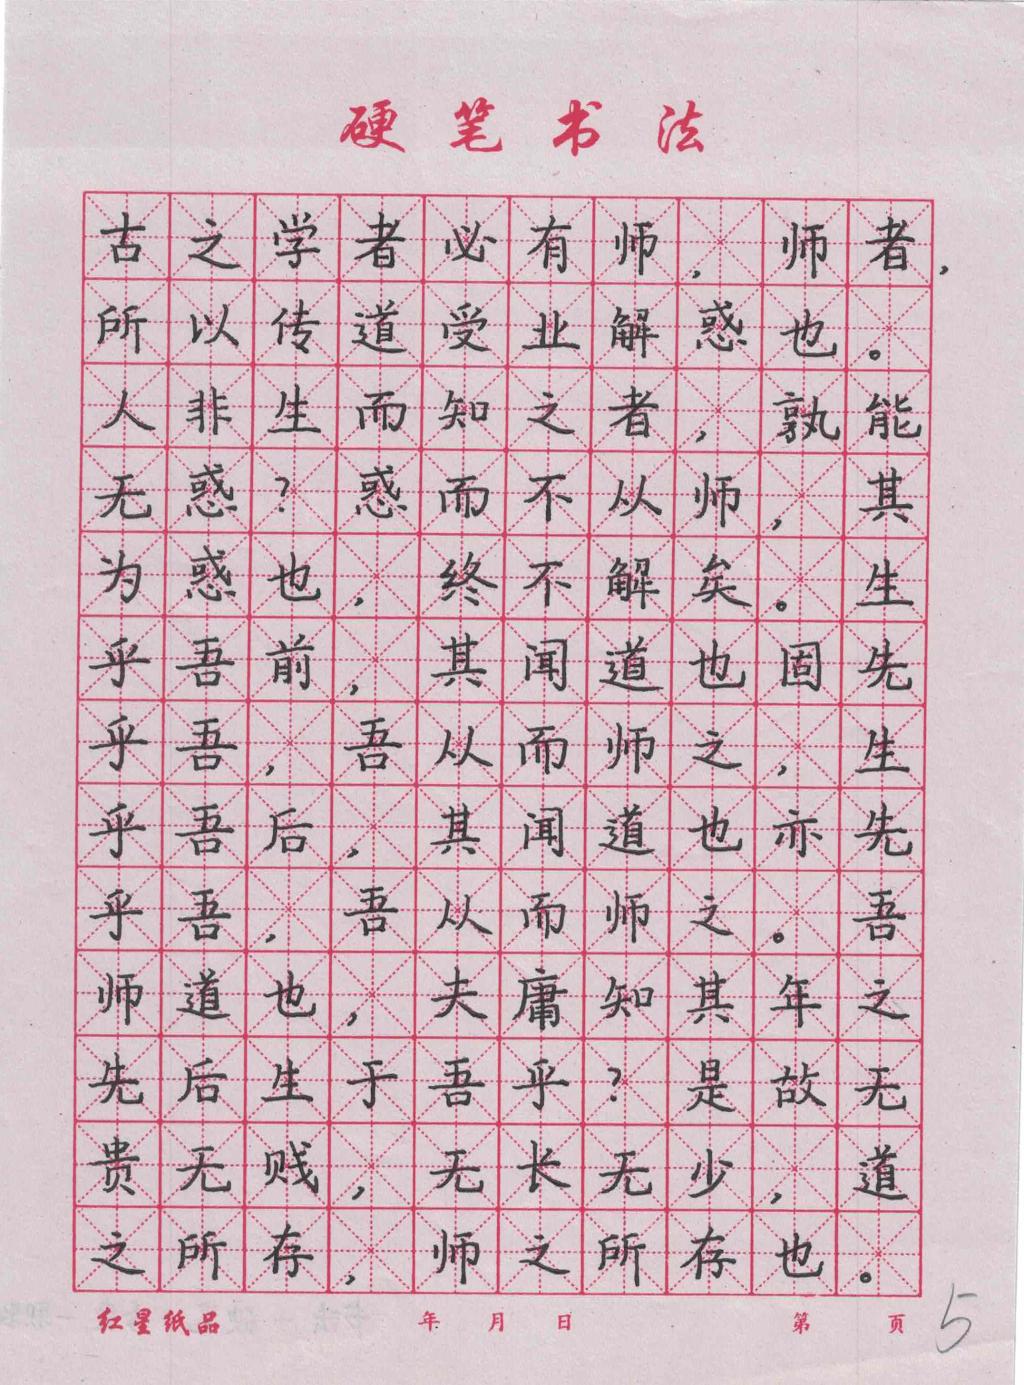 硬笔书法
古之学者必有师，师者，
所以传道受业解惑也。
人非生而知之者，孰能
无惑？惑而不从师，其
为惑也，终不解矣。生
乎吾前，其闻道也固先
乎吾，吾从而师之，生
乎吾后，其闻道也亦先
乎吾，吾从而师之。吾
师道也，夫庸知其年之
先后生于吾乎？是故无
贵无贱，无长无少，道
之所存，师之所存也。
红星纸品 年 月 日 第 页 5